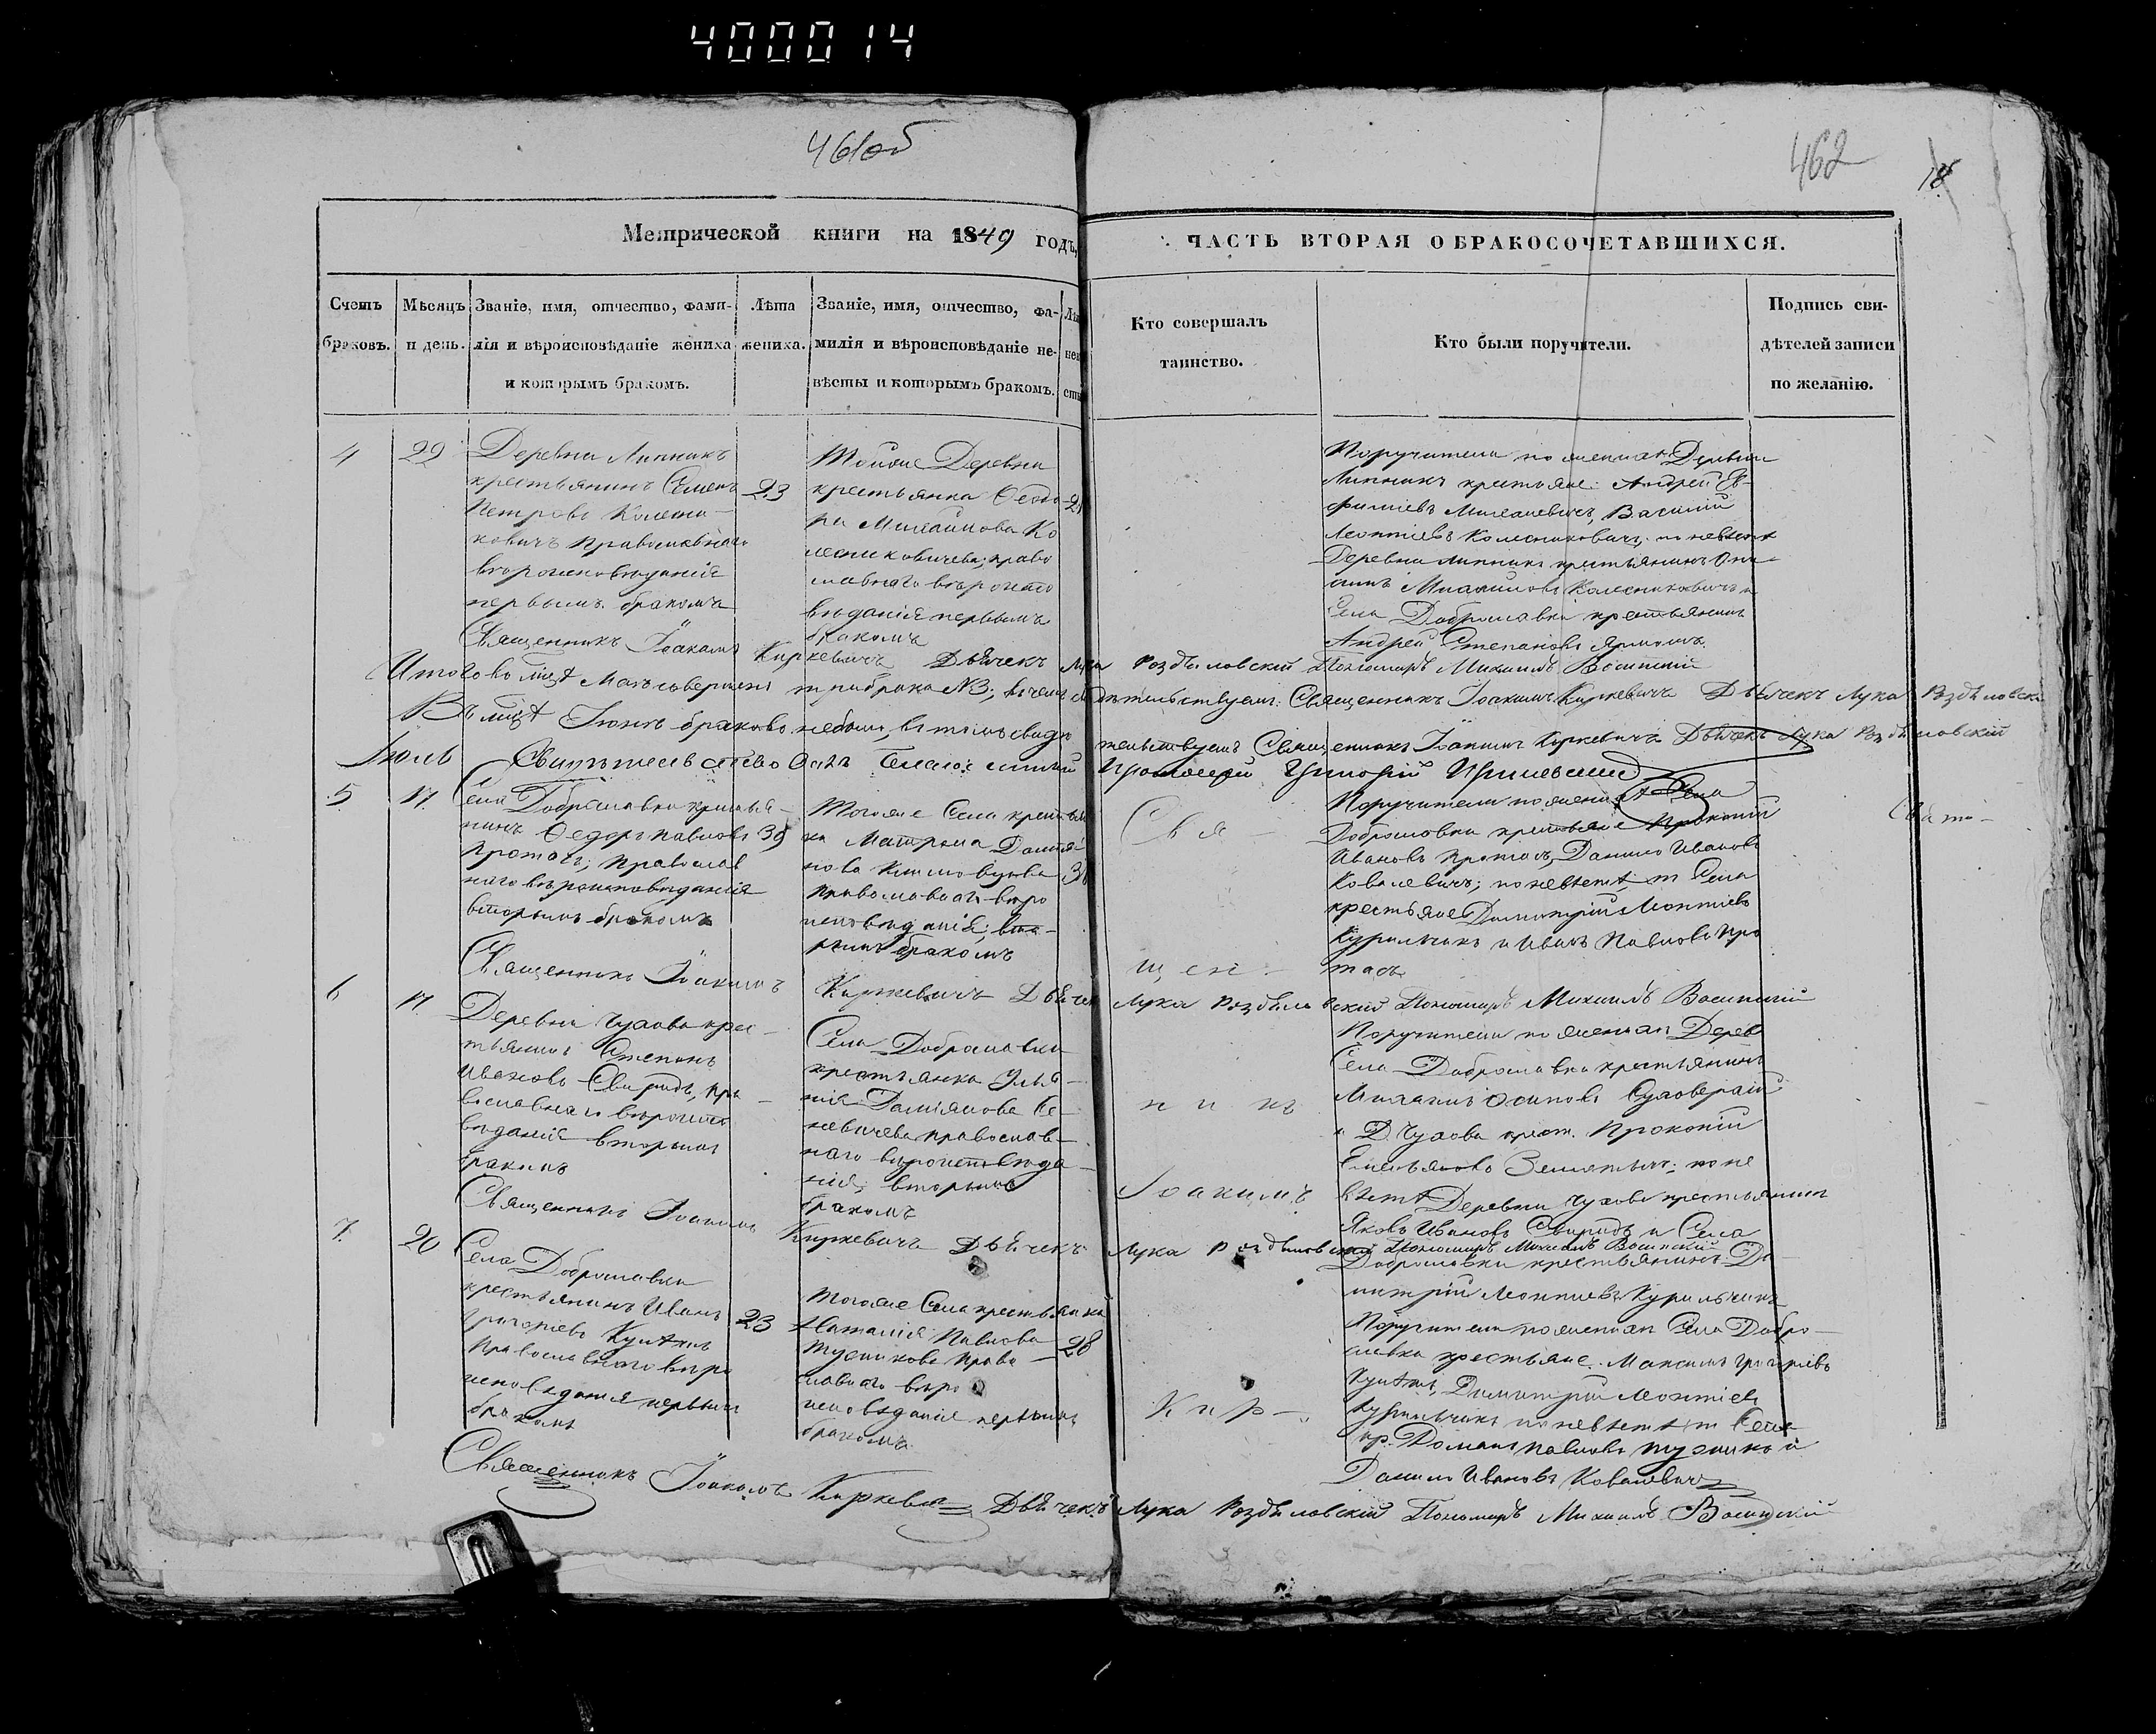 4000014
461об
462
18
Метрической книги на 1849 годъ,
ЧАСТЬ ВТОРАЯ О БРАКОСОЧЕТАВШИХСЯ.
Счетъ браковъ.
Мѣсяцъ и день.
Званіе, имя, отчество, фами-
лія и вѣроисповѣданіе жениха
и которымъ бракомъ.
Лѣта
жениха.
Званіе, имя, отчество, фа-
милія и вѣроисповѣданіе не-
вѣсты и которымъ бракомъ.
Кто совершалъ
таинство.
Кто были поручители.
Подпись сви-
дѣтелей записи
по желанію.
4
22
Деревни Липникъ
крестьянинъ Семенъ
Петровъ Колесни-
ковичъ православнаго
вѣроисповѣданія
первымъ бракомъ
23
Тойже Деревни
крестьянка Феодо-
ра Михайлова Ко
лесниковичева; право
славнаго вѣроиспо
вѣданія первымъ
бракомъ
21
Поручители по женихѣ Деревни
Липникъ крестьяне: Андрей Ев-
фиміевъ Василій
Леонтіевъ Колесниковичъ; по невѣстѣ
Деревни Липникъ крестьянинъ
Михайловъ Колесниковичъ и
Села Доброславки крестьянинъ
Андрей Степановъ
Священникъ Іоакимъ Киркевичъ Дьячекъ Лука Роздѣловскій Пономарь Михаилъ
Итого въ Маѣ совершено три брака №3; въ чемъ свидѣтельствуемъ: Священникъ Іоакимъ Киркевичъ Дьячекъ Лука Роздѣловскій
Въ Іюнѣ браковъ небыло, въ томъ свидѣ
тельствуемъ Священникъ Іоакимъ Киркевичъ Дьячекъ Лука Роздѣловскій
Іюль
Свидѣтельствовалъ Протоіерей Григорій
5
17
Села Доброславки крестья-
нинъ Федоръ Павловъ
Протасъ; Православ
наго вѣроисповѣданія
вторымъ бракомъ
39
Тогоже Села крестьян
ка Матрона
нова
Православнаго вѣро
исповѣданія; вто-
рымъ бракомъ
Свя
Поручители по женихѣ Села
Доброславки крестьяне Прокопій
Ивановъ Протасъ, Данило Ивановъ
Ковалевичъ; по невѣстѣ т Села
крестьяне Димитрій Леонтіевъ
Курильчикъ и Иванъ Павловъ Про
тасъ.
Священникъ Іоакимъ Киркевичъ Дьячекъ
щен-
Лука Роздѣловскій Пономарь Михаилъ
6
17
Деревни Чухова крес-
тьянинъ Степанъ
Ивановъ Свиридъ, пра-
вославнаго вѣроиспо
вѣданія вторымъ
бракомъ
Села Доброславки
крестьянка Улья-
нія Даміянова Се-
невичева православ-
наго вѣроисповѣда-
нія; вторымъ
бракомъ
никъ
Поручители по женихѣ Дерев
Села Доброславки крестьянинъ
Михаилъ Осиповъ
и Д. Чухова крест. Прокопій
Емельяновъ по не
вѣстѣ Деревни Чухова крестьянинъ
Яковъ Ивановъ Свиридъ и Села
Доброславки крестьянинъ Ди-
митрій Леонтіевъ Курильчикъ
Іоакимъ
Священникъ Іоакимъ Киркевичъ Дьячекъ Лука Роздѣловскій Пономарь Михаилъ
7.
20
Села Доброславки
крестьянинъ Иванъ
Григорьевъ
Православнаго вѣро
исповѣданія первымъ
бракомъ
23
Тогоже Села крестьянка
Наталія Павлова
право
славнаго вѣро
исповѣданія первымъ
бракомъ.
28
Кир-
Поручители по женихѣ Села Добро-
славки крестьяне. Максимъ Григорьевъ
Димитрій Леонтіевъ
Курильчикъ по невѣстѣ т Села
кр. Романъ Павловъ и
Данило Ивановъ Ковалевичъ
Священникъ Іоакимъ Киркевичъ Дьячекъ Лука Роздѣловскій Пономарь Михаилъ